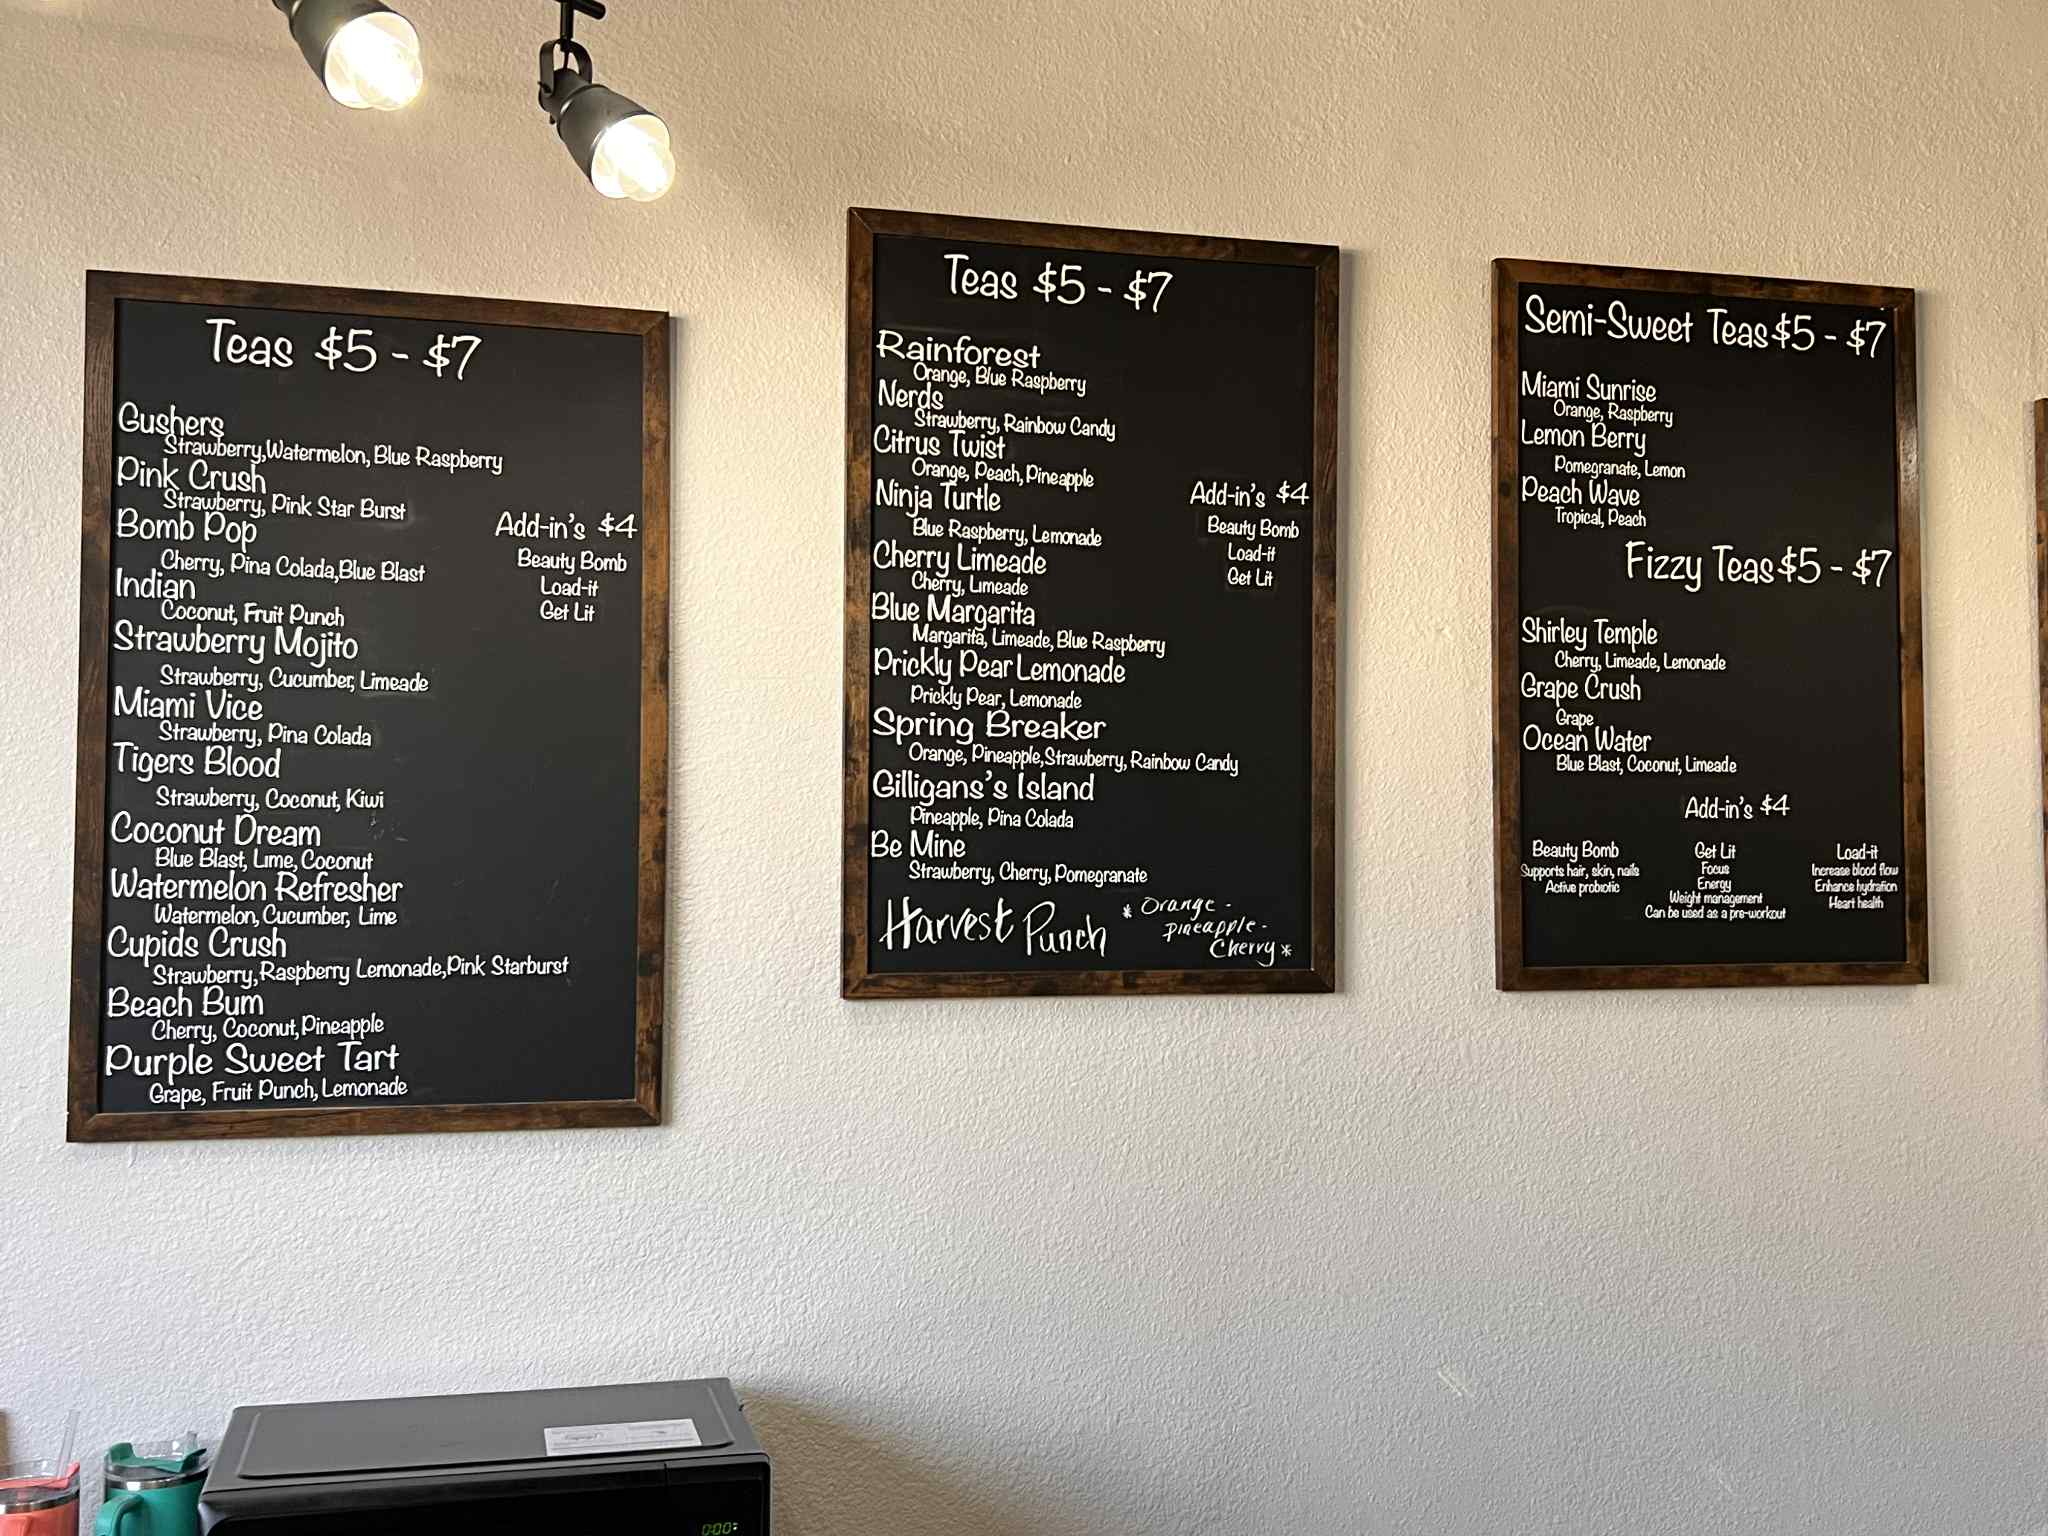 Teas $5 - $7
Gushers
Strawberry,Watermelon, Blue Raspberry
Pink Crush
Strawberry, Pink Star Burst
Bomb Pop
Cherry, Pina Colada,Blue Blast
Indian
Coconut, Fruit Punch
Strawberry Mojito
Strawberry, Cucumber, Limeade
Miami Vice
Strawberry, Pina Colada
Tigers Blood
Strawberry, Coconut, Kiwi
Coconut Dream
Blue Blast, Lime, Coconut
Watermelon Refresher
Watermelon, Cucumber, Lime
Cupids Crush
Strawberry,Raspberry Lemonade,Pink Starburst
Beach Bum
Cherry, Coconut,Pineapple
Purple Sweet Tart
Grape, Fruit Punch, Lemonade
Add-in's $4
Beauty Bomb
Load-it
Get Lit
Teas $5 - $7
Rainforest
Orange, Blue Raspberry
Nerds
Strawberry, Rainbow Candy
Citrus Twist
Orange, Peach, Pineapple
Ninja Turtle
Blue Raspberry, Lemonade
Cherry Limeade
Cherry, Limeade
Blue Margarita
Margarita, Limeade, Blue Raspberry
Prickly Pear Lemonade
Prickly Pear, Lemonade
Spring Breaker
Orange, Pineapple,Strawberry, Rainbow Candy
Gilligans's Island
Pineapple, Pina Colada
Be Mine
Strawberry, Cherry, Pomegranate
Harvest Punch
* Orange -
pineapple -
Cherry *
Add-in's $4
Beauty Bomb
Load-it
Get Lit
Semi-Sweet Teas $5 - $7
Miami Sunrise
Orange, Raspberry
Lemon Berry
Pomegranate, Lemon
Peach Wave
Tropical, Peach
Fizzy Teas $5 - $7
Shirley Temple
Cherry, Limeade, Lemonade
Grape Crush
Grape
Ocean Water
Blue Blast, Coconut, Limeade
Add-in's $4
Beauty Bomb
Supports hair, skin, nails
Active probiotic
Get Lit
Focus
Energy
Weight management
Can be used as a pre-workout
Load-it
Increase blood flow
Enhance hydration
Heart health
0:00